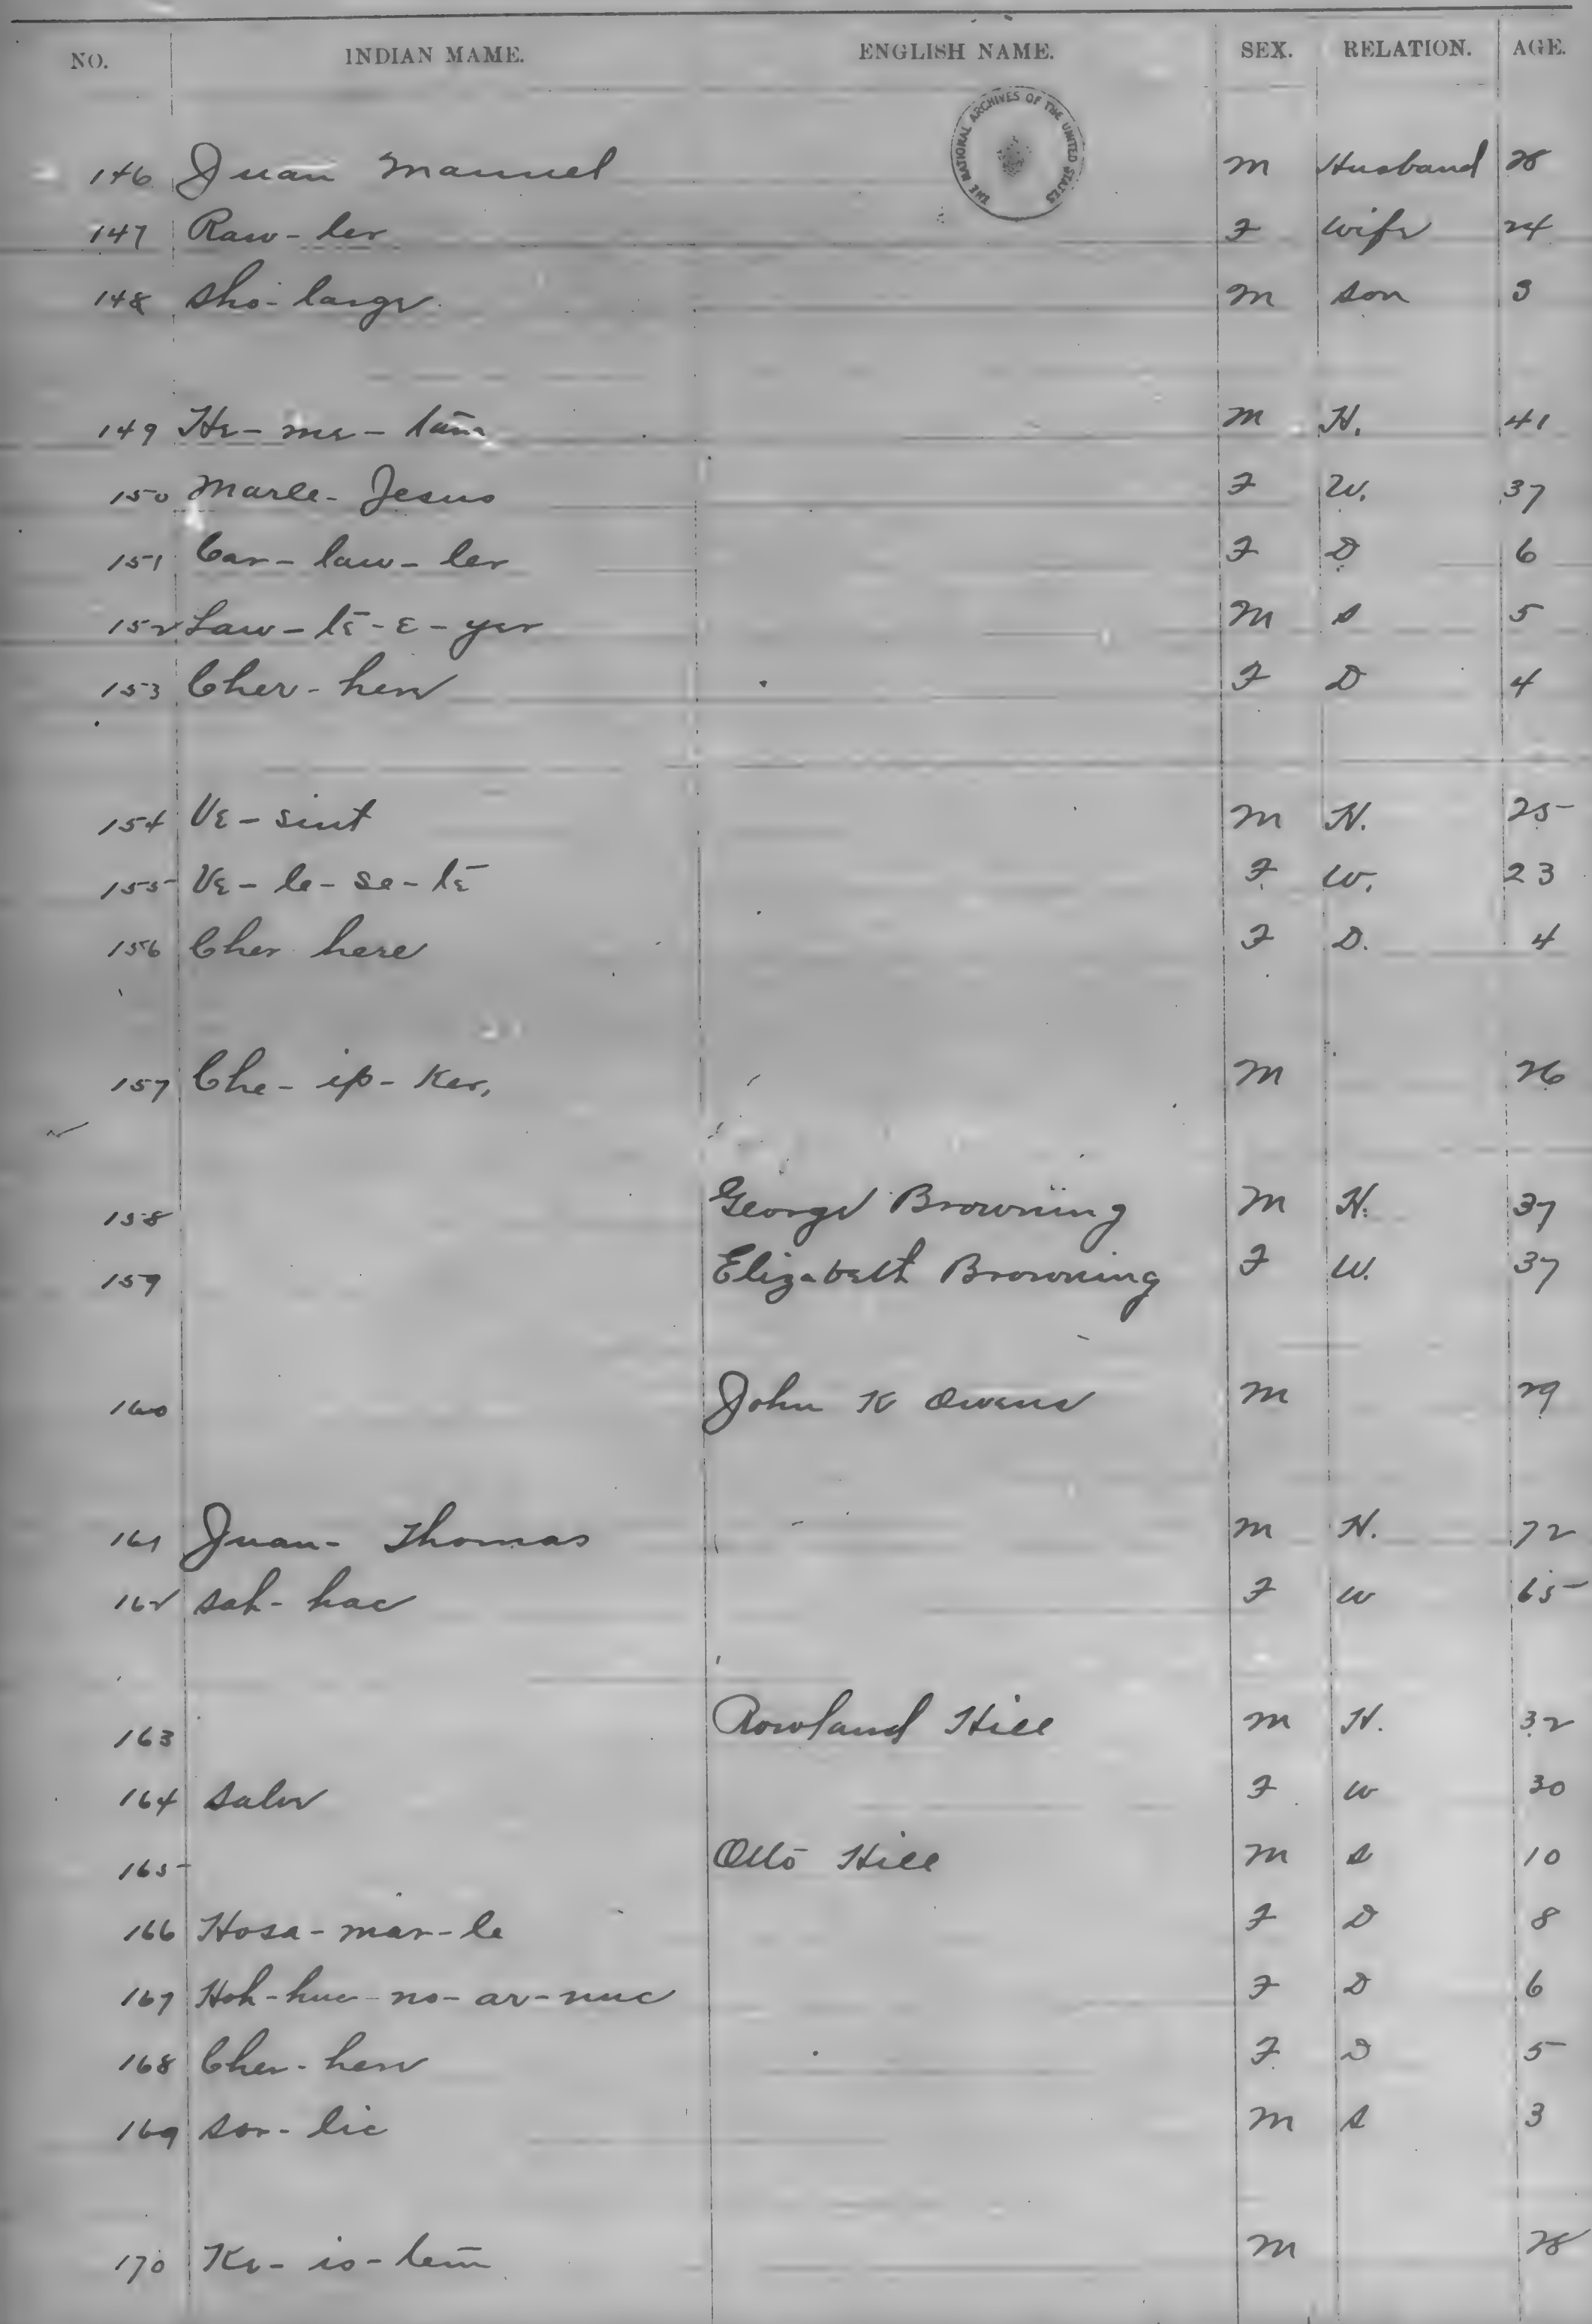 NO. INDIAN MAME. ENGLISH NAME. SEX. RELATION. AGE.
THE NATIONAL ARCHIVES OF THE UNITED STATES
146 Juan Manuel M Husband 28
147 Raw-ler F Wife 24
148 Sho-large M Son 3
149 He-me- M H. 41
150 Marle-Jesus F W. 37
151 Car-law-ler F D 6
152 Law-lē-e-yer M S 5
153 Cher-hen F D 4
154 Ve-sint M H. 25
155 Ve-le-se-lē F W. 23
156 Cher here F D. 4
157 Che-ip-Ker. M 26
158 George Browning M H. 37
159 Elizabeth Browning F W. 37
160 John K Owens M 29
161 Juan-Thomas M H. 72
162 Sah-hac F W 65
163 Rowland Hill M H. 32
164 F W 30
165 Otto Hill M S 10
166 Hosa-mar-le F D 8
167 Hoh-huc-no-ar-nuc F D 6
168 Cher-hen F D 5
169 Sor-lic M S 3
170 Ke-is- M 28